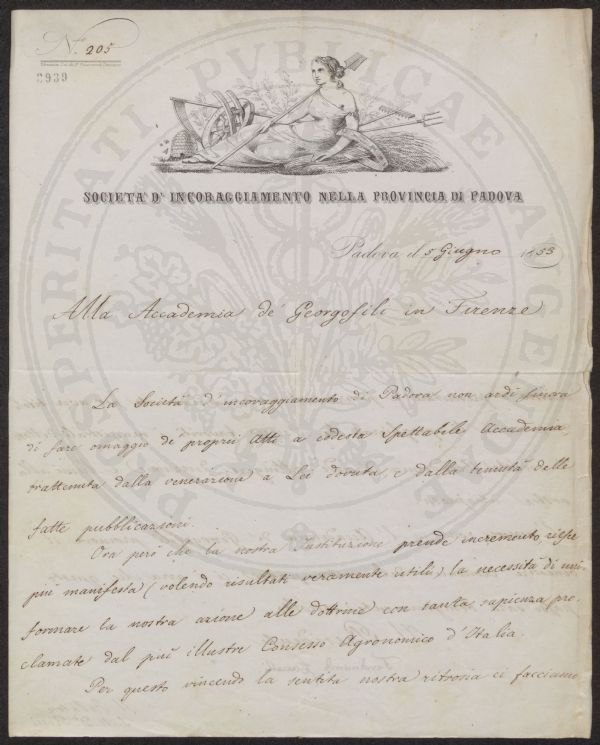 N.° 205
2939
SOCIETÀ D' INCORAGGIAMENTO NELLA PROVINCIA DI PADOVA
Padova il 5 Giugno 1853
Alla Accademia de' Georgofili in Firenze
La Società d'incoraggiamento di Padova non ardì finora
di fare omaggio de' proprii Atti a codesta Spettabile Accademia
trattenuta dalla venerazione a Lei dovuta, e dalla tenuità delle
fatte pubblicazioni.
Ora però che la nostra Instituzione prende incremento, riesce
più manifesta (volendo risultati veramente utili) la necessità di uni-
formare la nostra azione alle dottrine con tanta sapienza pro-
clamate dal più illustre Consesso Agronomico d'Italia.
Per questo vincendo la sentita nostra ritrosia ci facciamo
PROSPERITATI PUBLICAE AUGENDAE